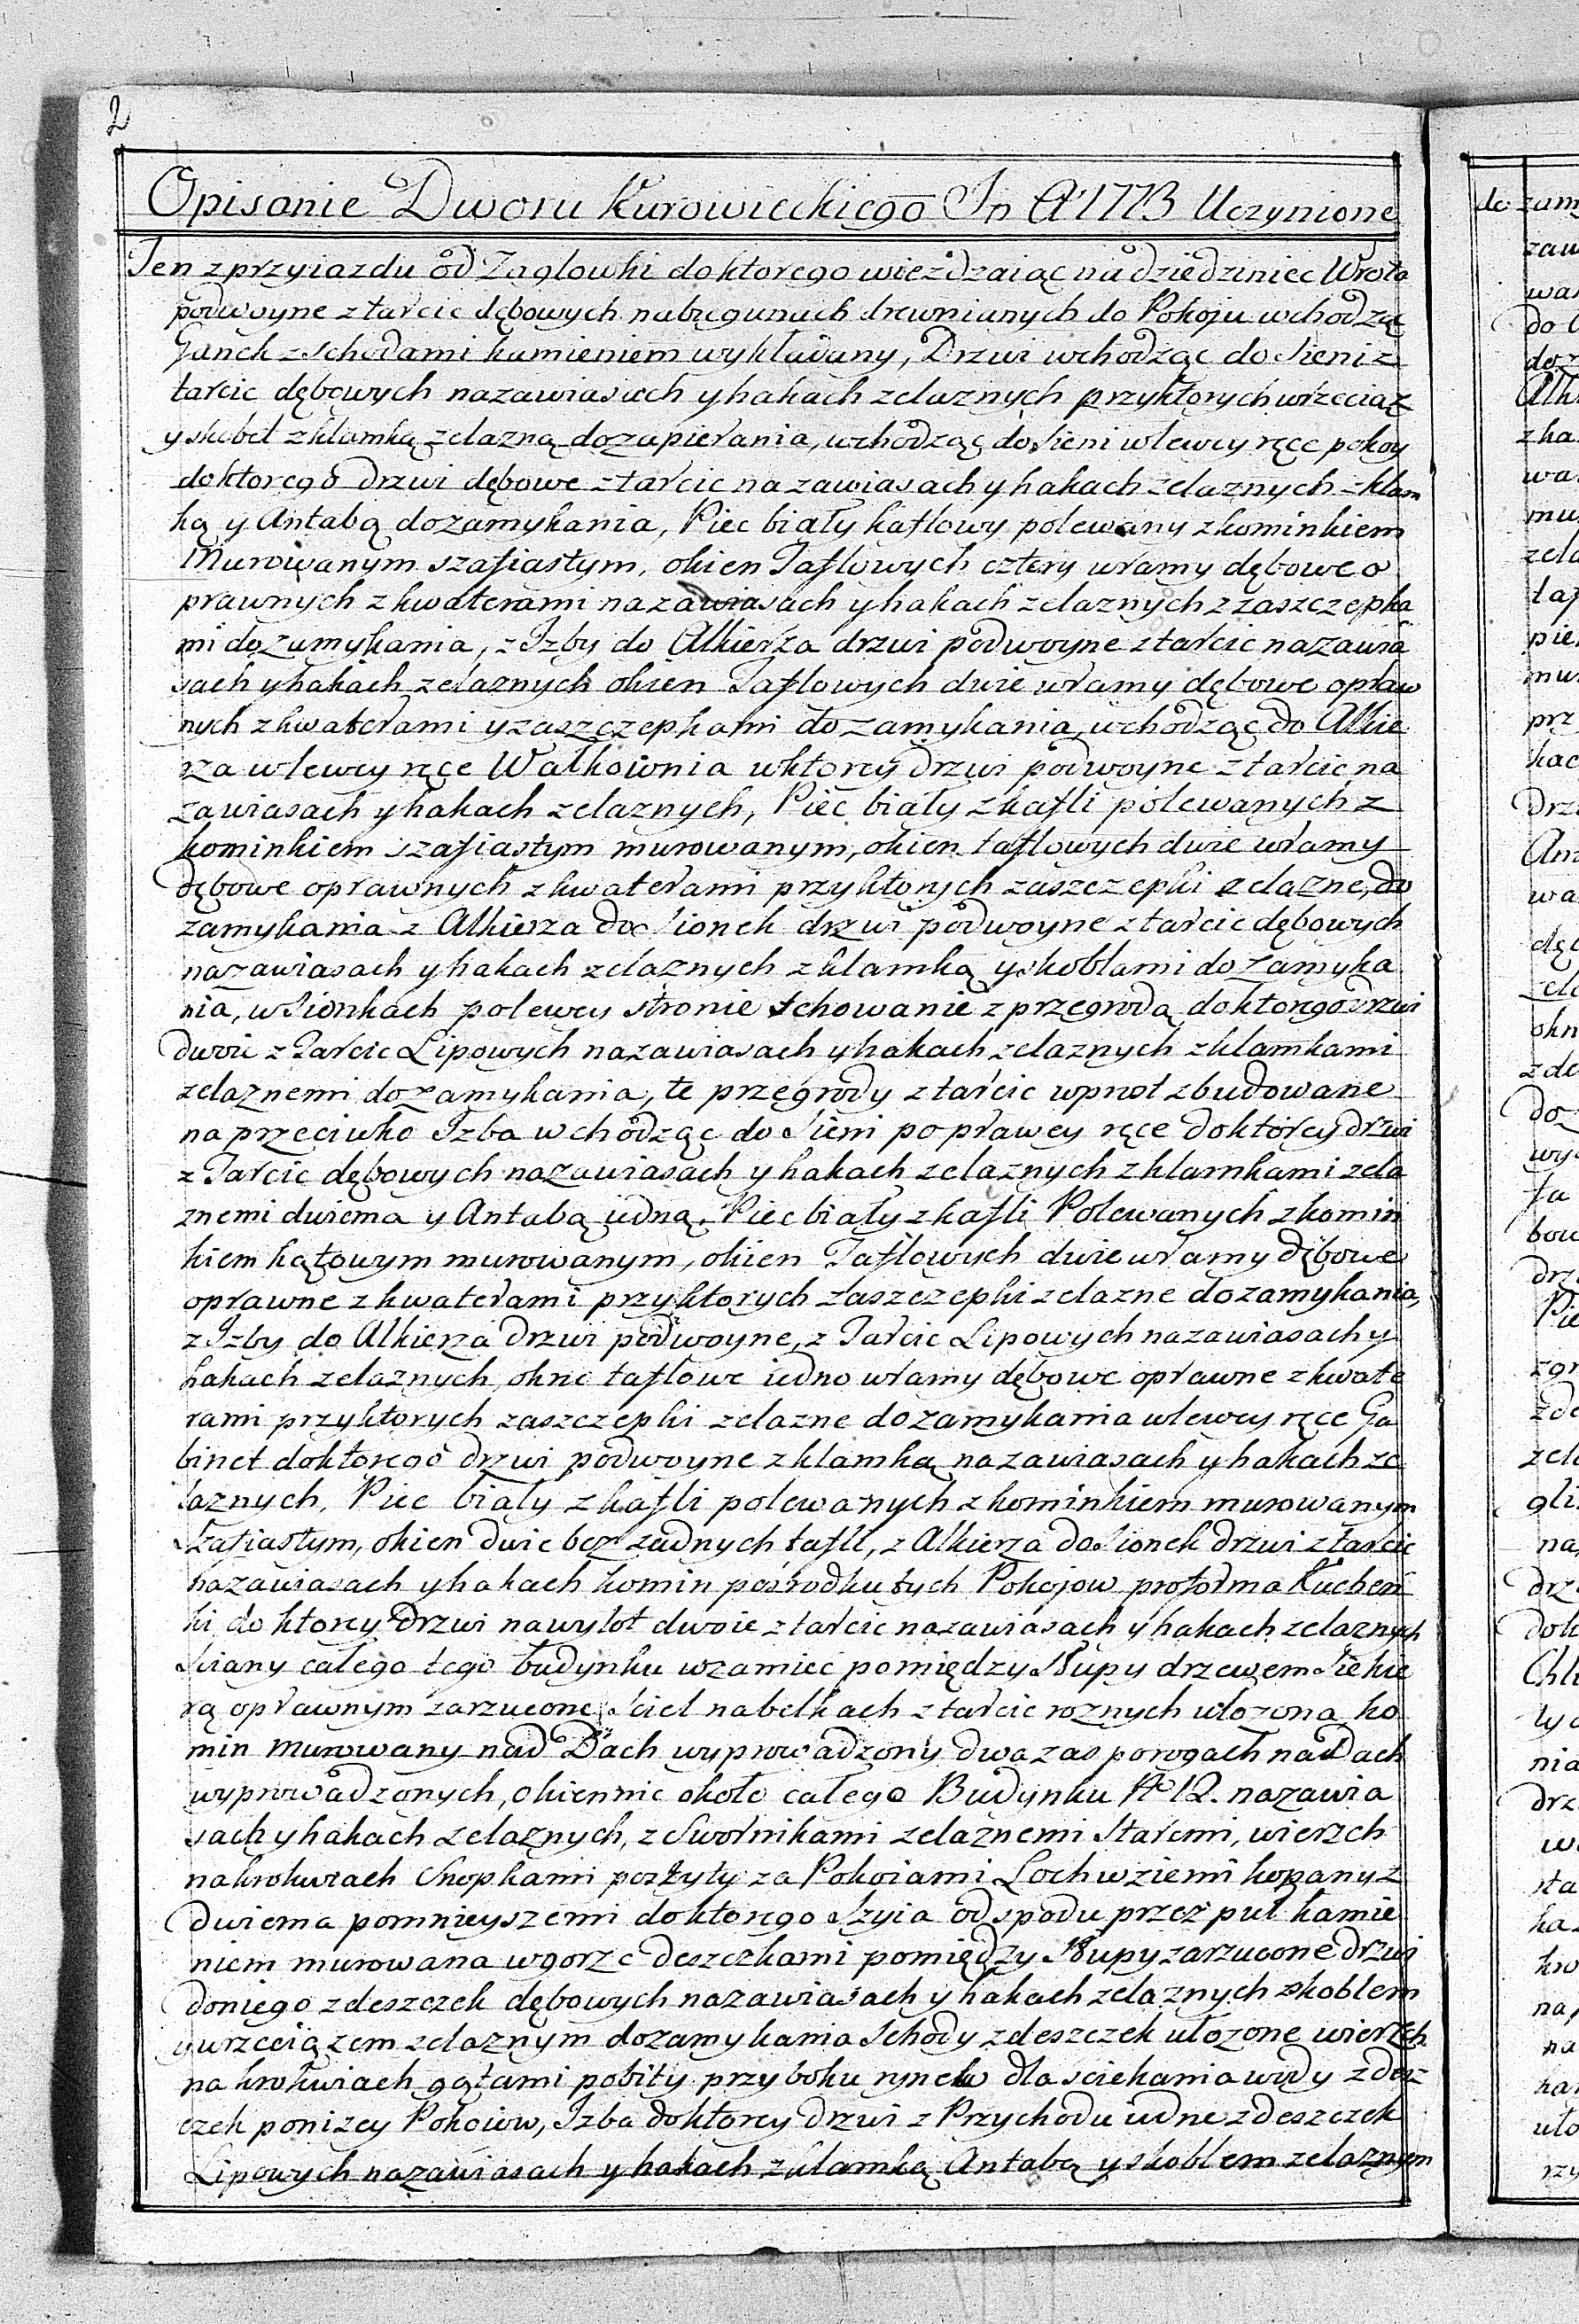 2
Opisanie Dworu Kurowieckiego In Aº 1773 Uczynione
Ten z przyiazdu od Zaglowki do ktorego wieżdzaiąc na dziedziniec Wrota
podwoyne z tarcic dębowych na biegunach drewnianych do Pokoju wchodzą
Ganek z schodami kamieniem wykładany, Drzwi wchodząc do Sieni z
tarcic dębowych na zawiasach y hakach zelaznych przy ktorych wrzeciąz
y skobel z klamką zelazną do zapierania, wchodząc do Sieni w lewey ręce pokoy
do ktorego drzwi dębowe z tarcic na zawiasach y hakach zelaznych z klam
ką y Antabą do zamykania, Piec biały kaflowy polewany z kominkiem
Murowanym szafiastym, okien Taflowych cztery w ramy dębowe o
prawnych z kwaterami na zawiasach y hakach zelaznych z zaszczepka
mi do zamykania, z Izby do Alkierza drzwi podwoyne z tarcic na zawia
sach y hakach zelaznych okien Taflowych dwie w ramy dębowe opraw
nych z kwaterami y zaszczepkami do zamykania, wchodząc do Alkie
rza w lewey ręce Wałkownia w ktorey drzwi podwoyne z tarcic na
zawiasach y hakach zelaznych, Piec biały z kafli polewanych z
kominkiem szafiastym murowanym, okien taflowych dwie w ramy
dębowe oprawnych z kwaterami przy ktorych zaszczepki zelazne, do
zamykania z Alkierza do Sionek drzwi podwoyne z tarcic dębowych
na zawiasach y hakach zelaznych z klamką y skoblami do zamyka
nia, w Sionkach po lewey stronie Schowanie z przegrodą do ktorego drzwi
dwoie z Tarcic Lipowych na zawiasach y hakach zelaznych z klamkami
zelaznemi do zamykania, te przegrody z tarcic wprost zbudowane
na przeciwko Izba wchodząc do Sieni po prawey ręce do ktorey drzwi
z Tarcic dębowych na zawiasach y hakach zelaznych z klamkami zela
znemi dwiema y Antabą iedną, Piec biały z kafli Polewanych z komin
kiem kątowym murowanym, okien Taflowych dwie w ramy dębowe
oprawne z kwaterami przy ktorych zaszczepki zelazne do zamykania,
z Izby do Alkierza drzwi podwoyne, z Tarcic Lipowych na zawiasach y
hakach zelaznych, okno taflowe iedno w ramy dębowe oprawne z kwate
rami przy ktorych zaszczepki zelazne do zamykania w lewey ręce Ga
binet do ktorego drzwi podwoyne z klamką na zawiasach y hakach ze
laznych, Piec biały z kafli polewanych z kominkiem murowanym
Szafiastym, okien dwie bez zadnych tafli, z Alkierza do Sionek drzwi z tarcic
na zawiasach y hakach komin posrodku tych Pokojow proforma Kuchen
ki do ktorey drzwi na wylot dwoie z tarcic na zawiasach y hakach zelaznych
Sciany całego tego budynku w zamieć pomiędzy Słupy drzewem Siekie
rą oprawnym zarzucone, Sciel na belkach z tarcic roznych ułozona, ko
min murowany nad Dach wyprowadzony dwa zas po rogach na Dach
wyprowadzonych, okiennic około całego Budynku Nº 12. na zawia
sach y hakach zelaznych, z Swornikami zelaznemi Staremi, wierzch
na krokwiach Snopkami poszyty za Pokoiami Loch w ziemi kopany z
dwiema pomnieyszemi do ktorego Szyia od spodu przez puł kamie
niem murowana w gorze deszczkami pomiędzy Słupy zarzucone drzwi
do niego z deszczek dębowych na zawiasach y hakach zelaznych z skoblem
y wrzeciązem zelaznym do zamykania Schody z deszczek ułozone wierzch
na krokwiach gątami pobity przy boku rynew dla sciekania wody z desz
czek ponizey Pokoiow, Izba do ktorey drzwi z Przychodu iedne z deszczek
Lipowych na zawiasach y hakach z klamką Antabą y skoblem zelaznym